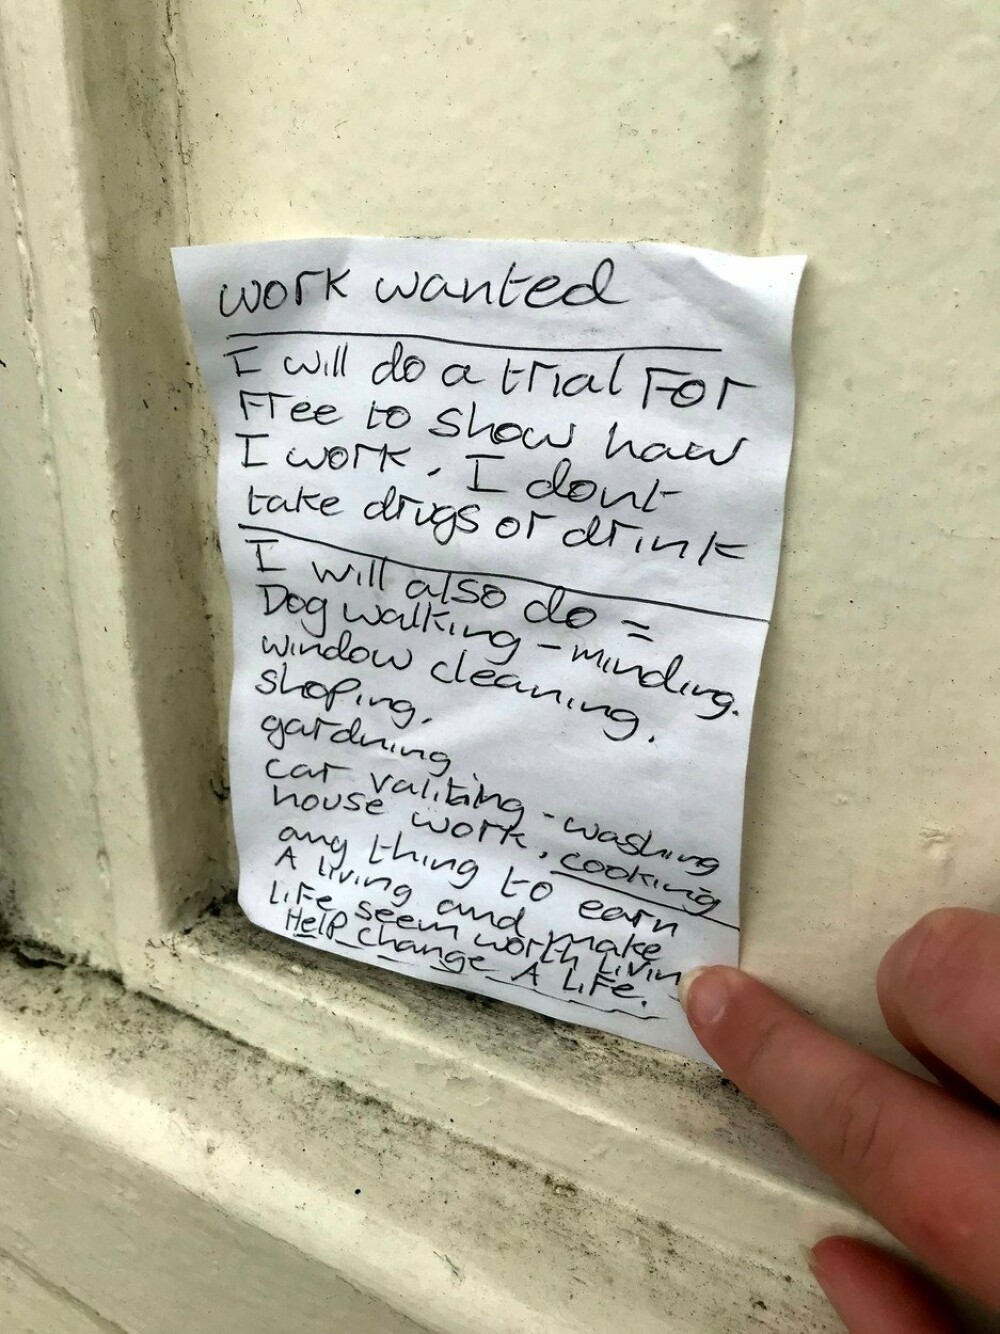 work wanted
I will do a trial For
Free to show how
I work. I dont
take drugs or drink
I will also do =
Dog walking - minding.
window cleaning.
shoping.
gardning
car valiting - washing
house work, cooking
any thing to earn
A living and make
LiFe seem worth Livin
Help change A LiFe.